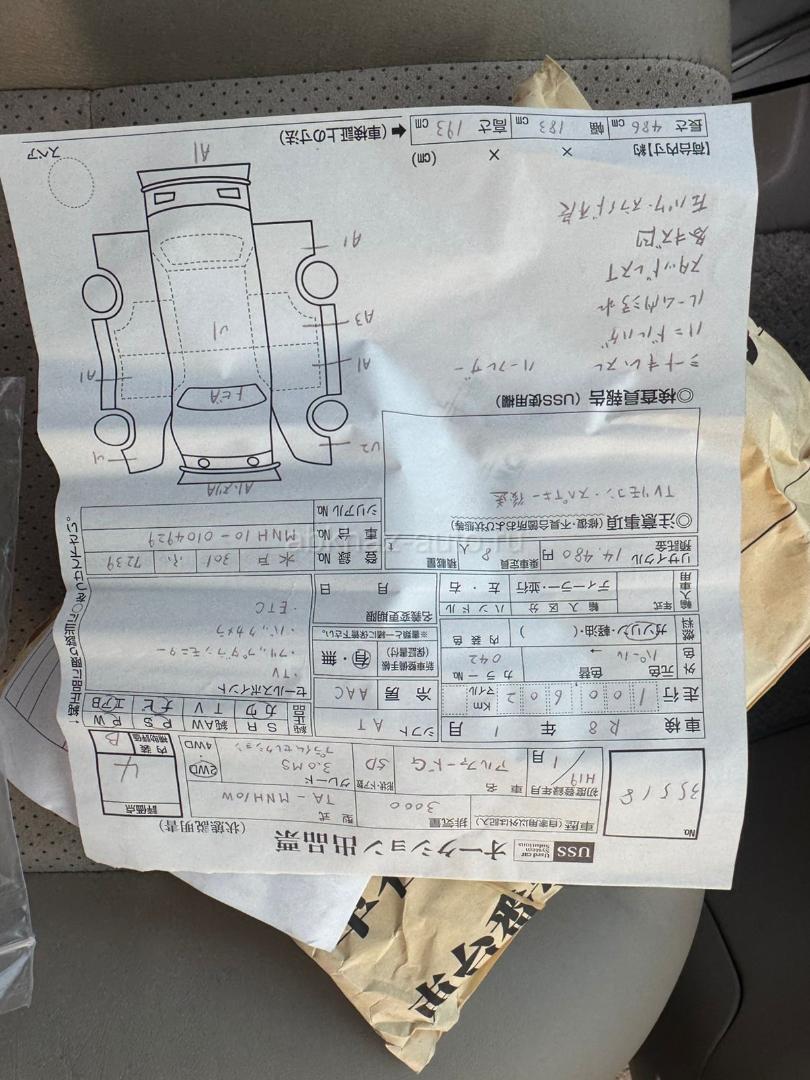 USS Used car System Solutions オークション出品票 (状態説明書)
No. 35518
車歴 (自家用以外は記入)
排気量 3000
型式 TA-MNH10W
評価点 4
内装 補助評価 B
初度登録年月 H19/1月
車名 アルファードG
形状・ドア数 5D
グレード 3.0MS プライムセレクション
2WD 4WD
車検 R8年1月
シフト AT
純正品 SR 純AW PS PW カワ TV ナビ エアB
走行 100602 Km マイル
冷房 AAC
セールスポイント
・TV
・フリップダウンモニター
・バックカメラ
・ETC
外色 元色 パール→
色替
カラーNo. 042
新車整備手帳(保証書付) 有・無
※書類と一緒に保管下さい。
燃料 ガソリン・軽油・( )
内装色
名義変更期限 月 日
輸入車用 年式
輸入区分 ディーラー・並行
ハンドル 左・右
リサイクル預託金 14,480円
乗車定員 8人
積載量
登録No. 水戸 301 7239
車台No. MNH10-0104929
シリアルNo.
◎注意事項 (修復・不具合箇所および状態等)
TVリモコン・スペアキー後送
◎検査員報告 (USS使用欄)
シートオレスレ ハーフレザー
ハンドルハゲ
ルーム内ヨゴレ
スタッドレスT
各キズ凹
左パワースライドオ良
A1・メリA
U2
トビA
A1
A1
A3
U1
A1
A1
スペア
【荷台内寸】約 × × (cm)
長さ 486 cm 幅 183 cm 高さ 193 cm ←(車検証上の寸法)